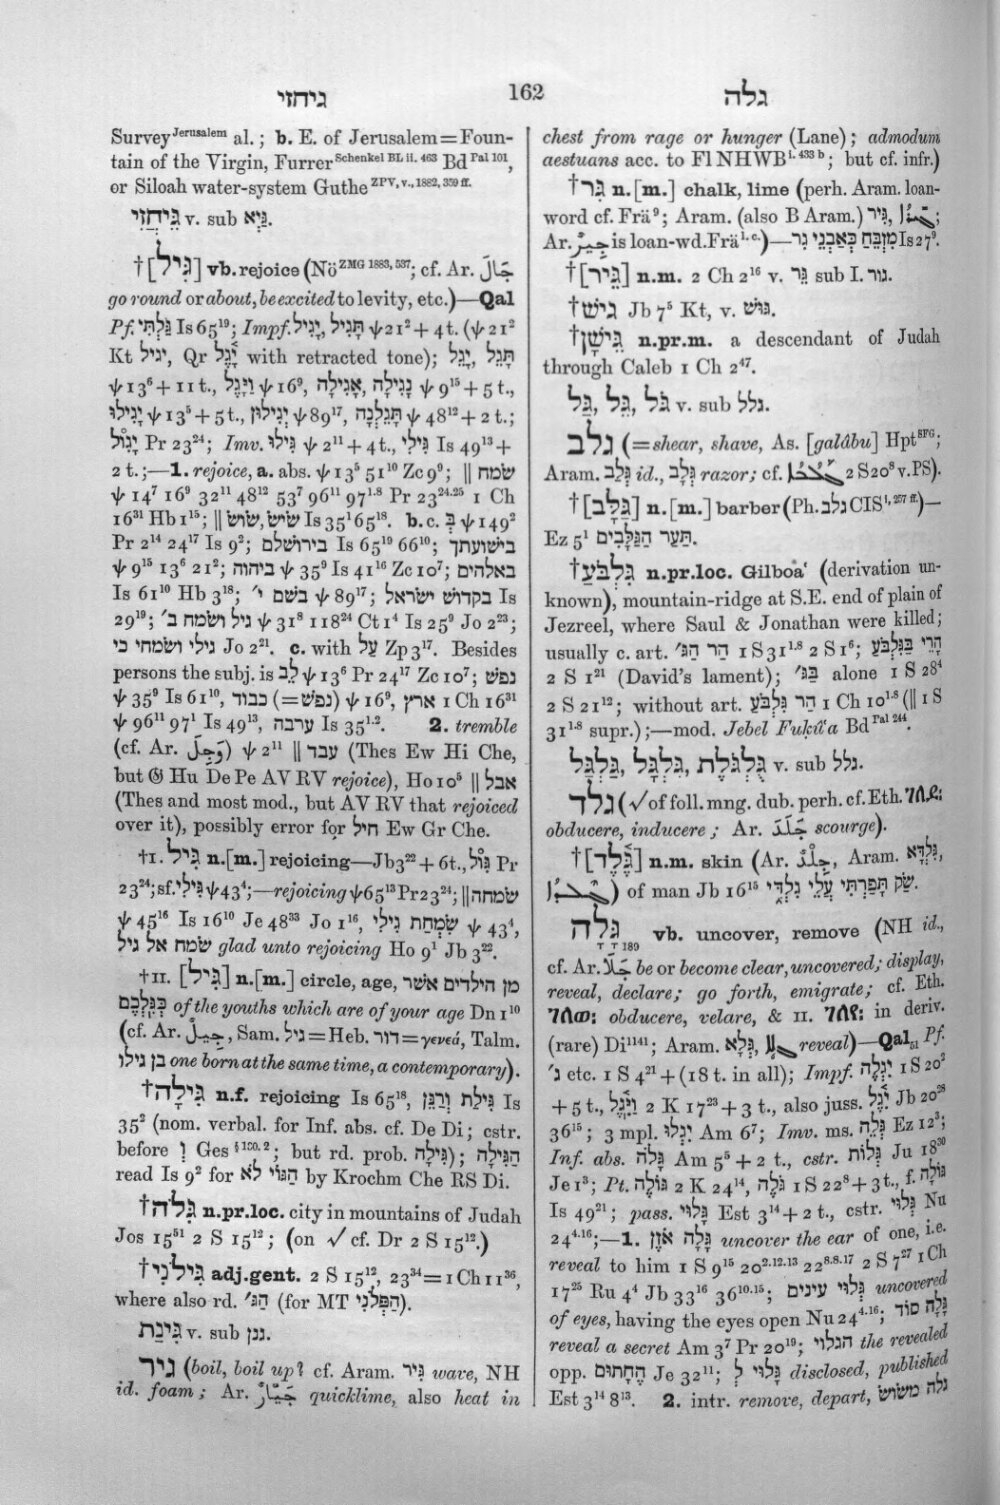 גיחזי
162
גלה
Survey Jerusalem al.; b. E. of Jerusalem=Foun-
tain of the Virgin, Furrer Schenkel BL ii. 463 Bd Pal 101,
or Siloah water-system Guthe ZPV, v., 1882, 359 ff.
גֵּיחֲזִי v. sub גַּיְא.
†[גִּיל] vb. rejoice (Nö ZMG 1883, 537; cf. Ar. جَالَ
go round or about, be excited to levity, etc.)—Qal
Pf. גַּלְתִּי Is 65¹⁹; Impf. תָּגִיל, יָגִיל ψ 21² + 4 t. (ψ 21²
Kt יגיל, Qr יָ֫גֶל with retracted tone); תָּגֵל, יָגֵל
ψ 13⁶ + 11 t., וַיָּגֶל ψ 16⁹, נָגִילָה, אָגִילָה ψ 9¹⁵ + 5 t.,
יָגִילוּ ψ 13⁵ + 5 t., יְגִילוּן ψ 89¹⁷, תָּגֵלְנָה ψ 48¹² + 2 t.;
יָגוֹל Pr 23²⁴; Imv. גִּילוּ ψ 2¹¹ + 4 t., גִּילִי Is 49¹³ +
2 t.;—1. rejoice, a. abs. ψ 13⁵ 51¹⁰ Zc 9⁹; ‖ שׂמח
ψ 14⁷ 16⁹ 32¹¹ 48¹² 53⁷ 96¹¹ 97¹·⁸ Pr 23²⁴·²⁵ 1 Ch
16³¹ Hb 1¹⁵; ‖ שׂישׂ, שׂושׂ Is 35¹ 65¹⁸. b. c. בְּ ψ 149²
Pr 2¹⁴ 24¹⁷ Is 9²; בירושלם Is 65¹⁹ 66¹⁰; בישועתך
ψ 9¹⁵ 13⁶ 21²; ביהוה ψ 35⁹ Is 41¹⁶ Zc 10⁷; באלהים
Is 61¹⁰ Hb 3¹⁸; בשם י׳ ψ 89¹⁷; בקדוש ישראל Is
29¹⁹; גיל ושׂמח ב׳ ψ 31⁸ 118²⁴ Ct 1⁴ Is 25⁹ Jo 2²³;
גילי ושׂמחי כי Jo 2²¹. c. with עַל Zp 3¹⁷. Besides
persons the subj. is לֵב ψ 13⁶ Pr 24¹⁷ Zc 10⁷; נפשׁ
ψ 35⁹ Is 61¹⁰, כבוד (=נפשׁ) ψ 16⁹, ארץ 1 Ch 16³¹
ψ 96¹¹ 97¹ Is 49¹³, ערבה Is 35¹·². 2. tremble
(cf. Ar. وَجِلَ) ψ 2¹¹ ‖ עבד (Thes Ew Hi Che,
but 𝔊 Hu De Pe AV RV rejoice), Ho 10⁵ ‖ אבל
(Thes and most mod., but AV RV that rejoiced
over it), possibly error for חיל Ew Gr Che.
†I. גִּיל n.[m.] rejoicing—Jb 3²² + 6 t., גּוֹל Pr
23²⁴; sf. גִּילִי ψ 43⁴;—rejoicing ψ 65¹³ Pr 23²⁴; ‖ שׂמחה
ψ 45¹⁶ Is 16¹⁰ Je 48³³ Jo 1¹⁶, שִׂמְחַת גִּילִי ψ 43⁴,
שׂמח אל גיל glad unto rejoicing Ho 9¹ Jb 3²².
†II. [גִּיל] n.[m.] circle, age, מן הילדים אשר
כְּגִלְכֶם of the youths which are of your age Dn 1¹⁰
(cf. Ar. جِيلٌ, Sam. גיל = Heb. דור = γενεά, Talm.
בן גילו one born at the same time, a contemporary).
†גִּילָה n.f. rejoicing Is 65¹⁸, גִּילַת וְרַנֵּן Is
35² (nom. verbal. for Inf. abs. cf. De Di; cstr.
before וְ Ges § 130. 2; but rd. prob. גִּילָה); הַגִּילָה
read Is 9² for הַגּוֹי לֹא by Krochm Che RS Di.
†גִּלֹה n.pr.loc. city in mountains of Judah
Jos 15⁵¹ 2 S 15¹²; (on √ cf. Dr 2 S 15¹².)
†גִּילֹנִי adj.gent. 2 S 15¹², 23³⁴ = 1 Ch 11³⁶,
where also rd. הַגּ׳ (for MT הַפְּלֹנִי).
גִּינַת v. sub גנן.
גיר (boil, boil up? cf. Aram. גִּיר wave, NH
id. foam; Ar. جَيَّارٌ quicklime, also heat in
chest from rage or hunger (Lane); admodum
aestuans acc. to Fl NHWB i. 433 b; but cf. infr.)
†גִּר n.[m.] chalk, lime (perh. Aram. loan-
word cf. Frä⁹; Aram. (also B Aram.) גִּיר,
Ar. جِيرٌ is loan-wd. Frä l.c.)—מִזְבֵּחַ כְּאַבְנֵי גִר Is 27⁹.
†[גֵּיר] n.m. 2 Ch 2¹⁶ v. גֵּר sub I. גור.
†גיש Jb 7⁵ Kt, v. גּוּשׁ.
†גֵּישָׁן n.pr.m. a descendant of Judah
through Caleb 1 Ch 2⁴⁷.
גַּל, גֵּל, גֹּל v. sub גלל.
גלב (=shear, shave, As. [galâbu] Hpt SFG;
Aram. גְּלַב id., גְּלָב razor; cf. 2 S 20⁸ v. PS).
†[גַּלָּב] n.[m.] barber (Ph. גלב CIS i, 257 ff.)—
תַּעַר הַגַּלָּבִים Ez 5¹.
†גִּלְבֹּעַ n.pr.loc. Gilboaʿ (derivation un-
known), mountain-ridge at S.E. end of plain of
Jezreel, where Saul & Jonathan were killed;
usually c. art. הַר הַגּ׳ 1 S 31¹·⁸ 2 S 1⁶; הָרֵי בַגִּלְבֹּעַ
2 S 1²¹ (David's lament); בַּגּ׳ alone 1 S 28⁴
2 S 21¹²; without art. הַר גִּלְבֹּעַ 1 Ch 10¹·⁸ (‖ 1 S
31¹·⁸ supr.);—mod. Jebel Fuḳûʿa Bd Pal 244.
גַּלְגַּל, גִּלְגָּל, גֻּלְגֹּלֶת v. sub גלל.
גלד (√ of foll. mng. dub. perh. cf. Eth. ገለደ:
obducere, inducere; Ar. جَلَدَ scourge).
†[גֶּ֫לֶד] n.m. skin (Ar. جِلْدٌ, Aram. גִּלְדָּא,
) of man Jb 16¹⁵ שַׂק תָּפַרְתִּי עֲלֵי גִלְדִּי.
גָּלָה 189 vb. uncover, remove (NH id.,
cf. Ar. جَلَا be or become clear, uncovered; display,
reveal, declare; go forth, emigrate; cf. Eth.
obducere, velare, & II. in deriv.
(rare) Di 1141; Aram. גְּלָא, reveal)—Qal 51 Pf.
ג׳ etc. 1 S 4²¹ + (18 t. in all); Impf. יִגְלֶה 1 S 20²
+ 5 t., וַיִּ֫גֶל 2 K 17²³ + 3 t., also juss. יִ֫גֶל Jb 20²⁸
36¹⁵; 3 mpl. יִגְלוּ Am 6⁷; Imv. ms. גְּלֵה Ez 12³;
Inf. abs. גָּלֹה Am 5⁵ + 2 t., cstr. גְּלוֹת Ju 18³⁰
Je 1³; Pt. גּוֹלֶה 2 K 24¹⁴, גֹּלֶה 1 S 22⁸ + 3 t., f. גּוֹלָה
Is 49²¹; pass. גָּלוּי Est 3¹⁴ + 2 t., cstr. גְּלוּי Nu
24⁴·¹⁶;—1. גָּלָה אֹזֶן uncover the ear of one, i.e.
reveal to him 1 S 9¹⁵ 20²·¹²·¹³ 22⁸·⁸·¹⁷ 2 S 7²⁷ 1 Ch
17²⁵ Ru 4⁴ Jb 33¹⁶ 36¹⁰·¹⁵; גְּלוּי עינים uncovered
of eyes, having the eyes open Nu 24⁴·¹⁶; גָּלָה סוֹד
reveal a secret Am 3⁷ Pr 20¹⁹; הגלוי the revealed
opp. הֶחָתוּם Je 32¹¹; גָּלוּי לְ disclosed, published
Est 3¹⁴ 8¹³. 2. intr. remove, depart, גלה משׂושׂ